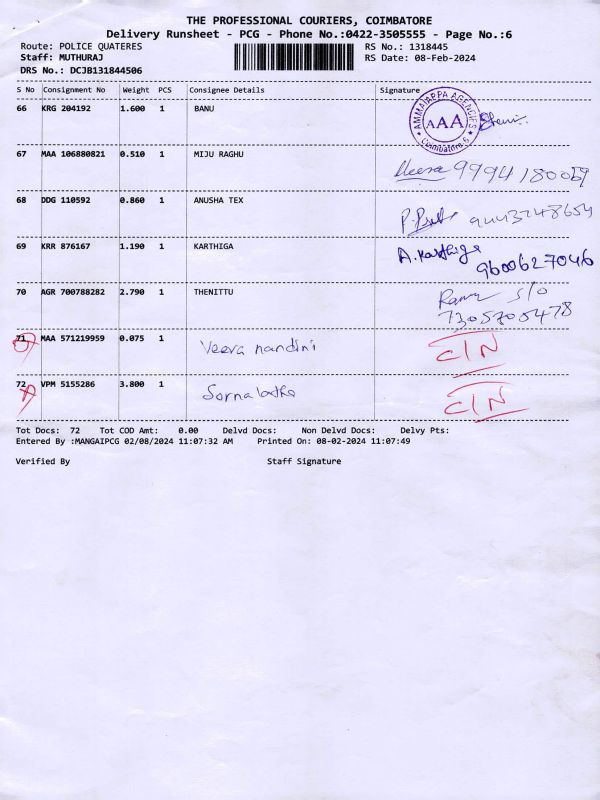 THE PROFESSIONAL COURIERS, COIMBATORE
Delivery Runsheet - PCG - Phone No.:0422-3505555 - Page No.:6
Route: POLICE QUATERES RS No.: 1318445
Staff: MUTHURAJ RS Date: 08-Feb-2024
DRS No.: DCJB131844506
S No Consignment No Weight PCS Consignee Details Signature
66 KRG 204192 1.600 1 BANU
AMMAIAPPA AGENCIES
AAA
Coimbatore-6
67 MAA 106880821 0.510 1 MIJU RAGHU
Meera 9994180059
68 DDG 110592 0.860 1 ANUSHA TEX
9443748654
69 KRR 876167 1.190 1 KARTHIGA A.Karthiga
9600627046
70 AGR 700788282 2.790 1 THENITTU
S/O
7305705478
71 MAA 571219959 0.075 1 Veera nandini C/N
72 VPM 5155286 3.800 1 Sornalatha C/N
Tot Docs: 72 Tot COD Amt: 0.00 Delvd Docs: Non Delvd Docs: Delvy Pts:
Entered By :MANGAIPCG 02/08/2024 11:07:32 AM Printed On: 08-02-2024 11:07:49
Verified By Staff Signature